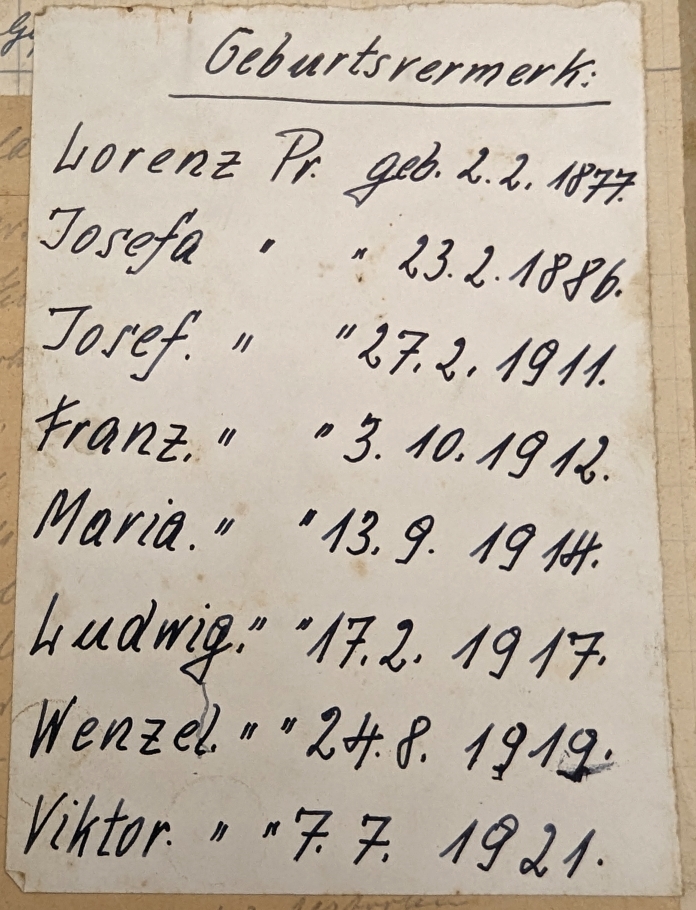 Geburtsvermerk:
Lorenz Pr. geb. 2.2. 1877.
Josefa " " 23.2.1886.
Josef. " " 27.2. 1911.
Franz. " " 3. 10. 1912.
Maria. " " 13. 9. 1914.
Ludwig. " " 17.2. 1917.
Wenzel. " " 24.8. 1919.
Viktor. " " 7. 7. 1921.